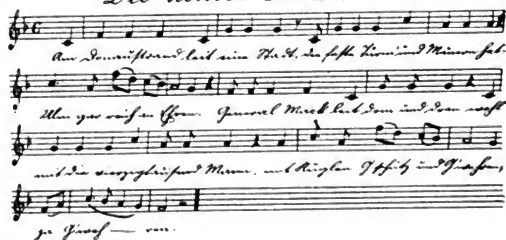 Die
Am Donaustrand leit eine Stadt, die feste Türm und Mauern hat.
Ulm gar reich an Ehren. General Mack leit und dran wohl
mit die vierzigtausend Mann, mit Kuglen Gschütz und Gwehren,
ja Gweh — ren.